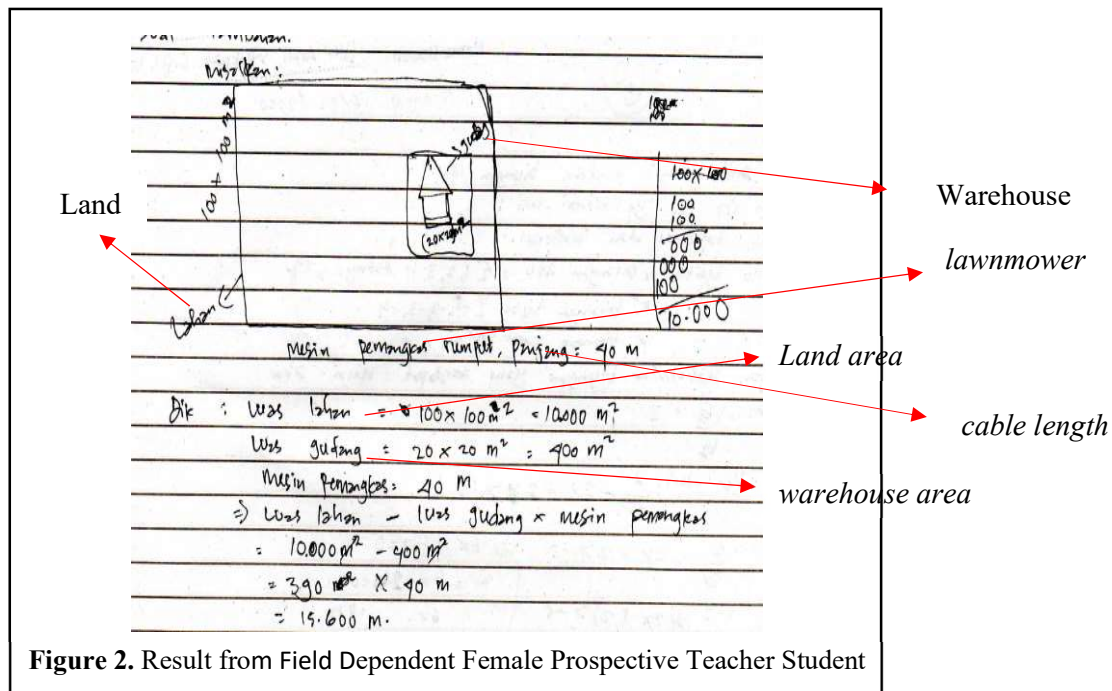 misalkan:
100 x 100 m²
gudang
(20x20m²
lahan
100x100
100
100
000
000
100
10.000
Land
Warehouse
lawnmower
Land area
cable length
warehouse area
mesin pemangkas rumput, panjang = 40 m
Dik : luas lahan = 100 x 100 m² = 10.000 m²
luas gudang = 20 x 20 m² = 400 m²
Mesin pemangkas = 40 m
=> luas lahan - luas gudang x mesin pemangkas
= 10.000 m² - 400 m²
= 390 m² X 40 m
= 15.600 m.
Figure 2. Result from Field Dependent Female Prospective Teacher Student